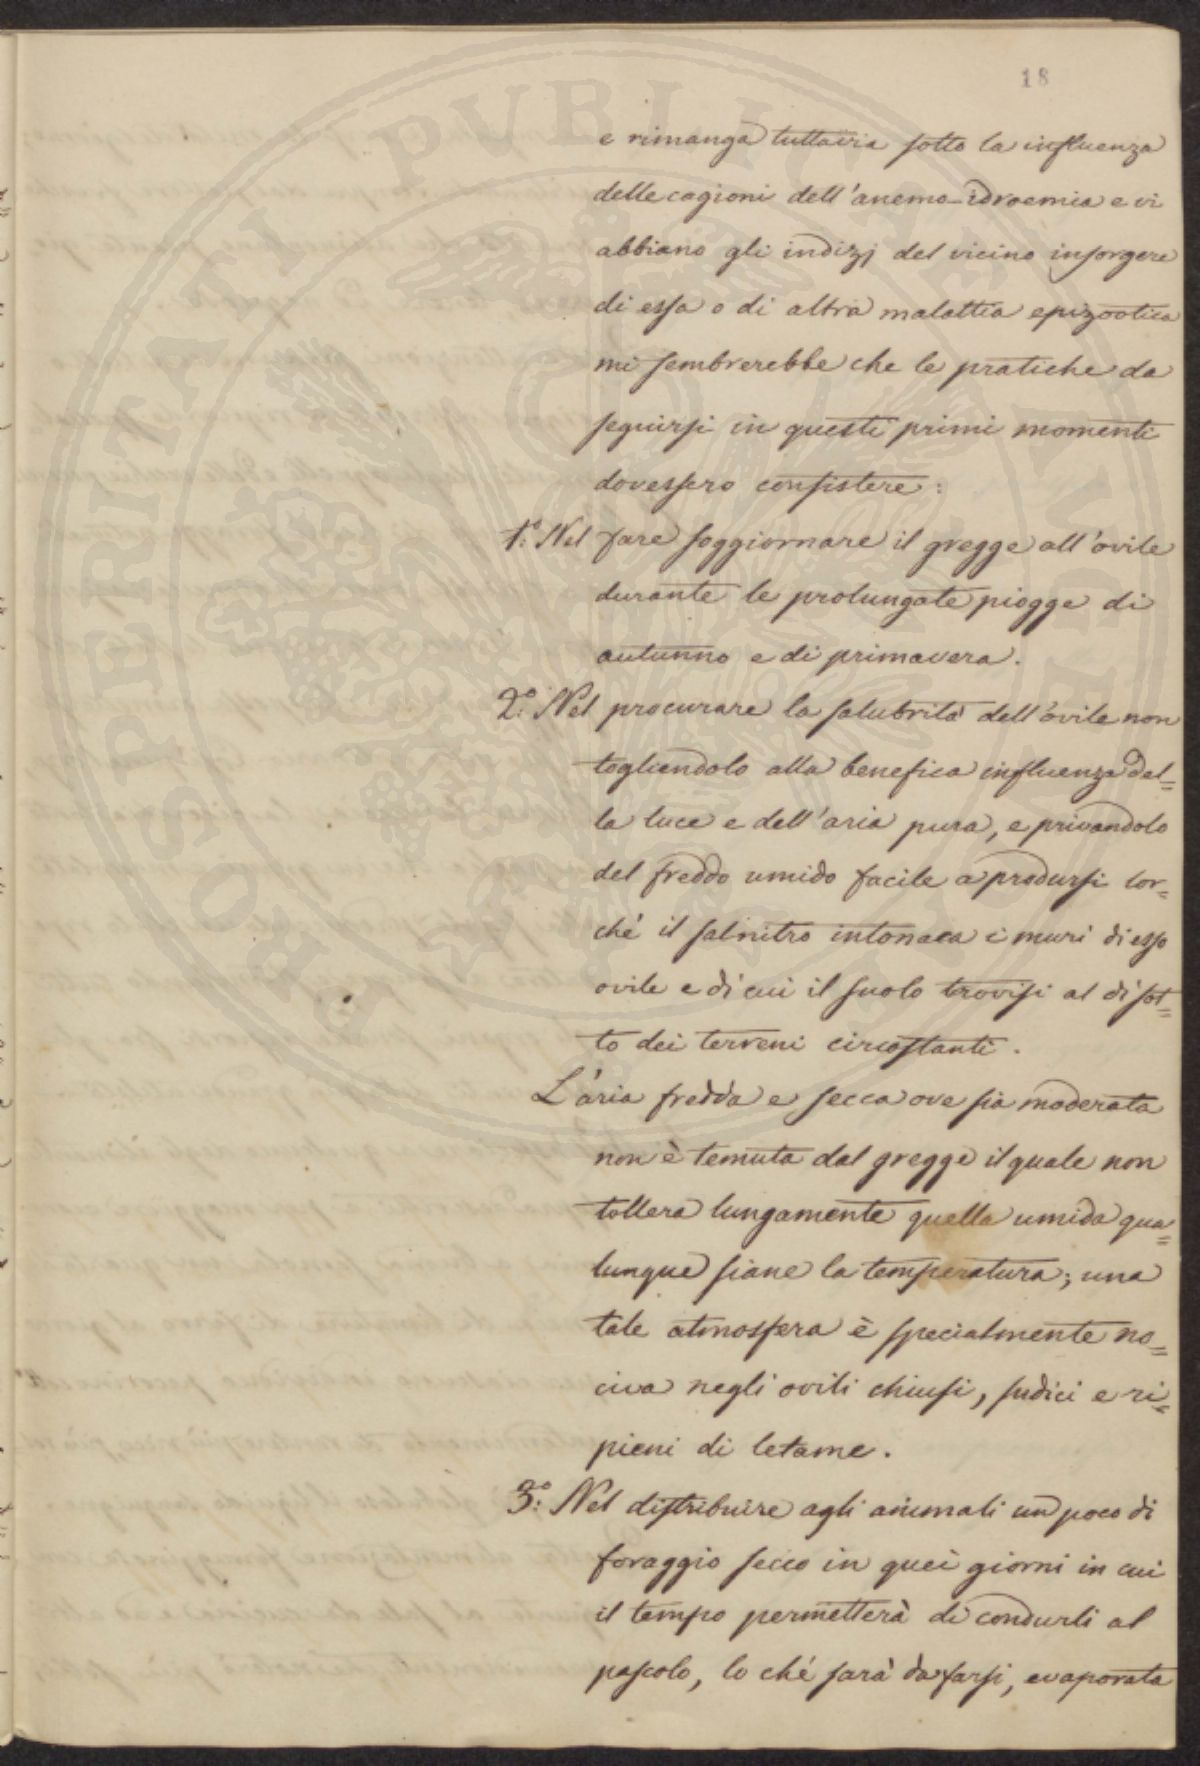 18
e rimanga tuttavia sotto la influenza
delle cagioni dell'anemo-idroemia e vi
abbiano gli indizj del vicino insorgere
di essa o di altra malattia epizootica
mi sembrerebbe che le pratiche da
seguirsi in questi primi momenti
dovessero consistere:
1.° Nel fare soggiornare il gregge all'ovile
durante le prolungate piogge di
autunno e di primavera.
2.° Nel procurare la salubrità dell'ovile non
togliendolo alla benefica influenza del=
la luce e dell'aria pura, e privandolo
del freddo umido facile a prodursi lor=
ché il salnitro intonaca i muri di esso
ovile e di cui il suolo trovisi al di sot=
to dei terreni circostanti.
L'aria fredda e secca ove sia moderata
non è temuta dal gregge il quale non
tollera lungamente quella umida qua=
lunque siane la temperatura; una
tale atmosfera è specialmente no=
civa negli ovili chiusi, sudici e ri=
pieni di letame.
3.° Nel distribuire agli animali un poco di
foraggio secco in quei giorni in cui
il tempo permetterà di condurli al
pascolo, lo ché sarà da farsi, evaporata
PROSPERITATI PUBLICAE AUGENDAE